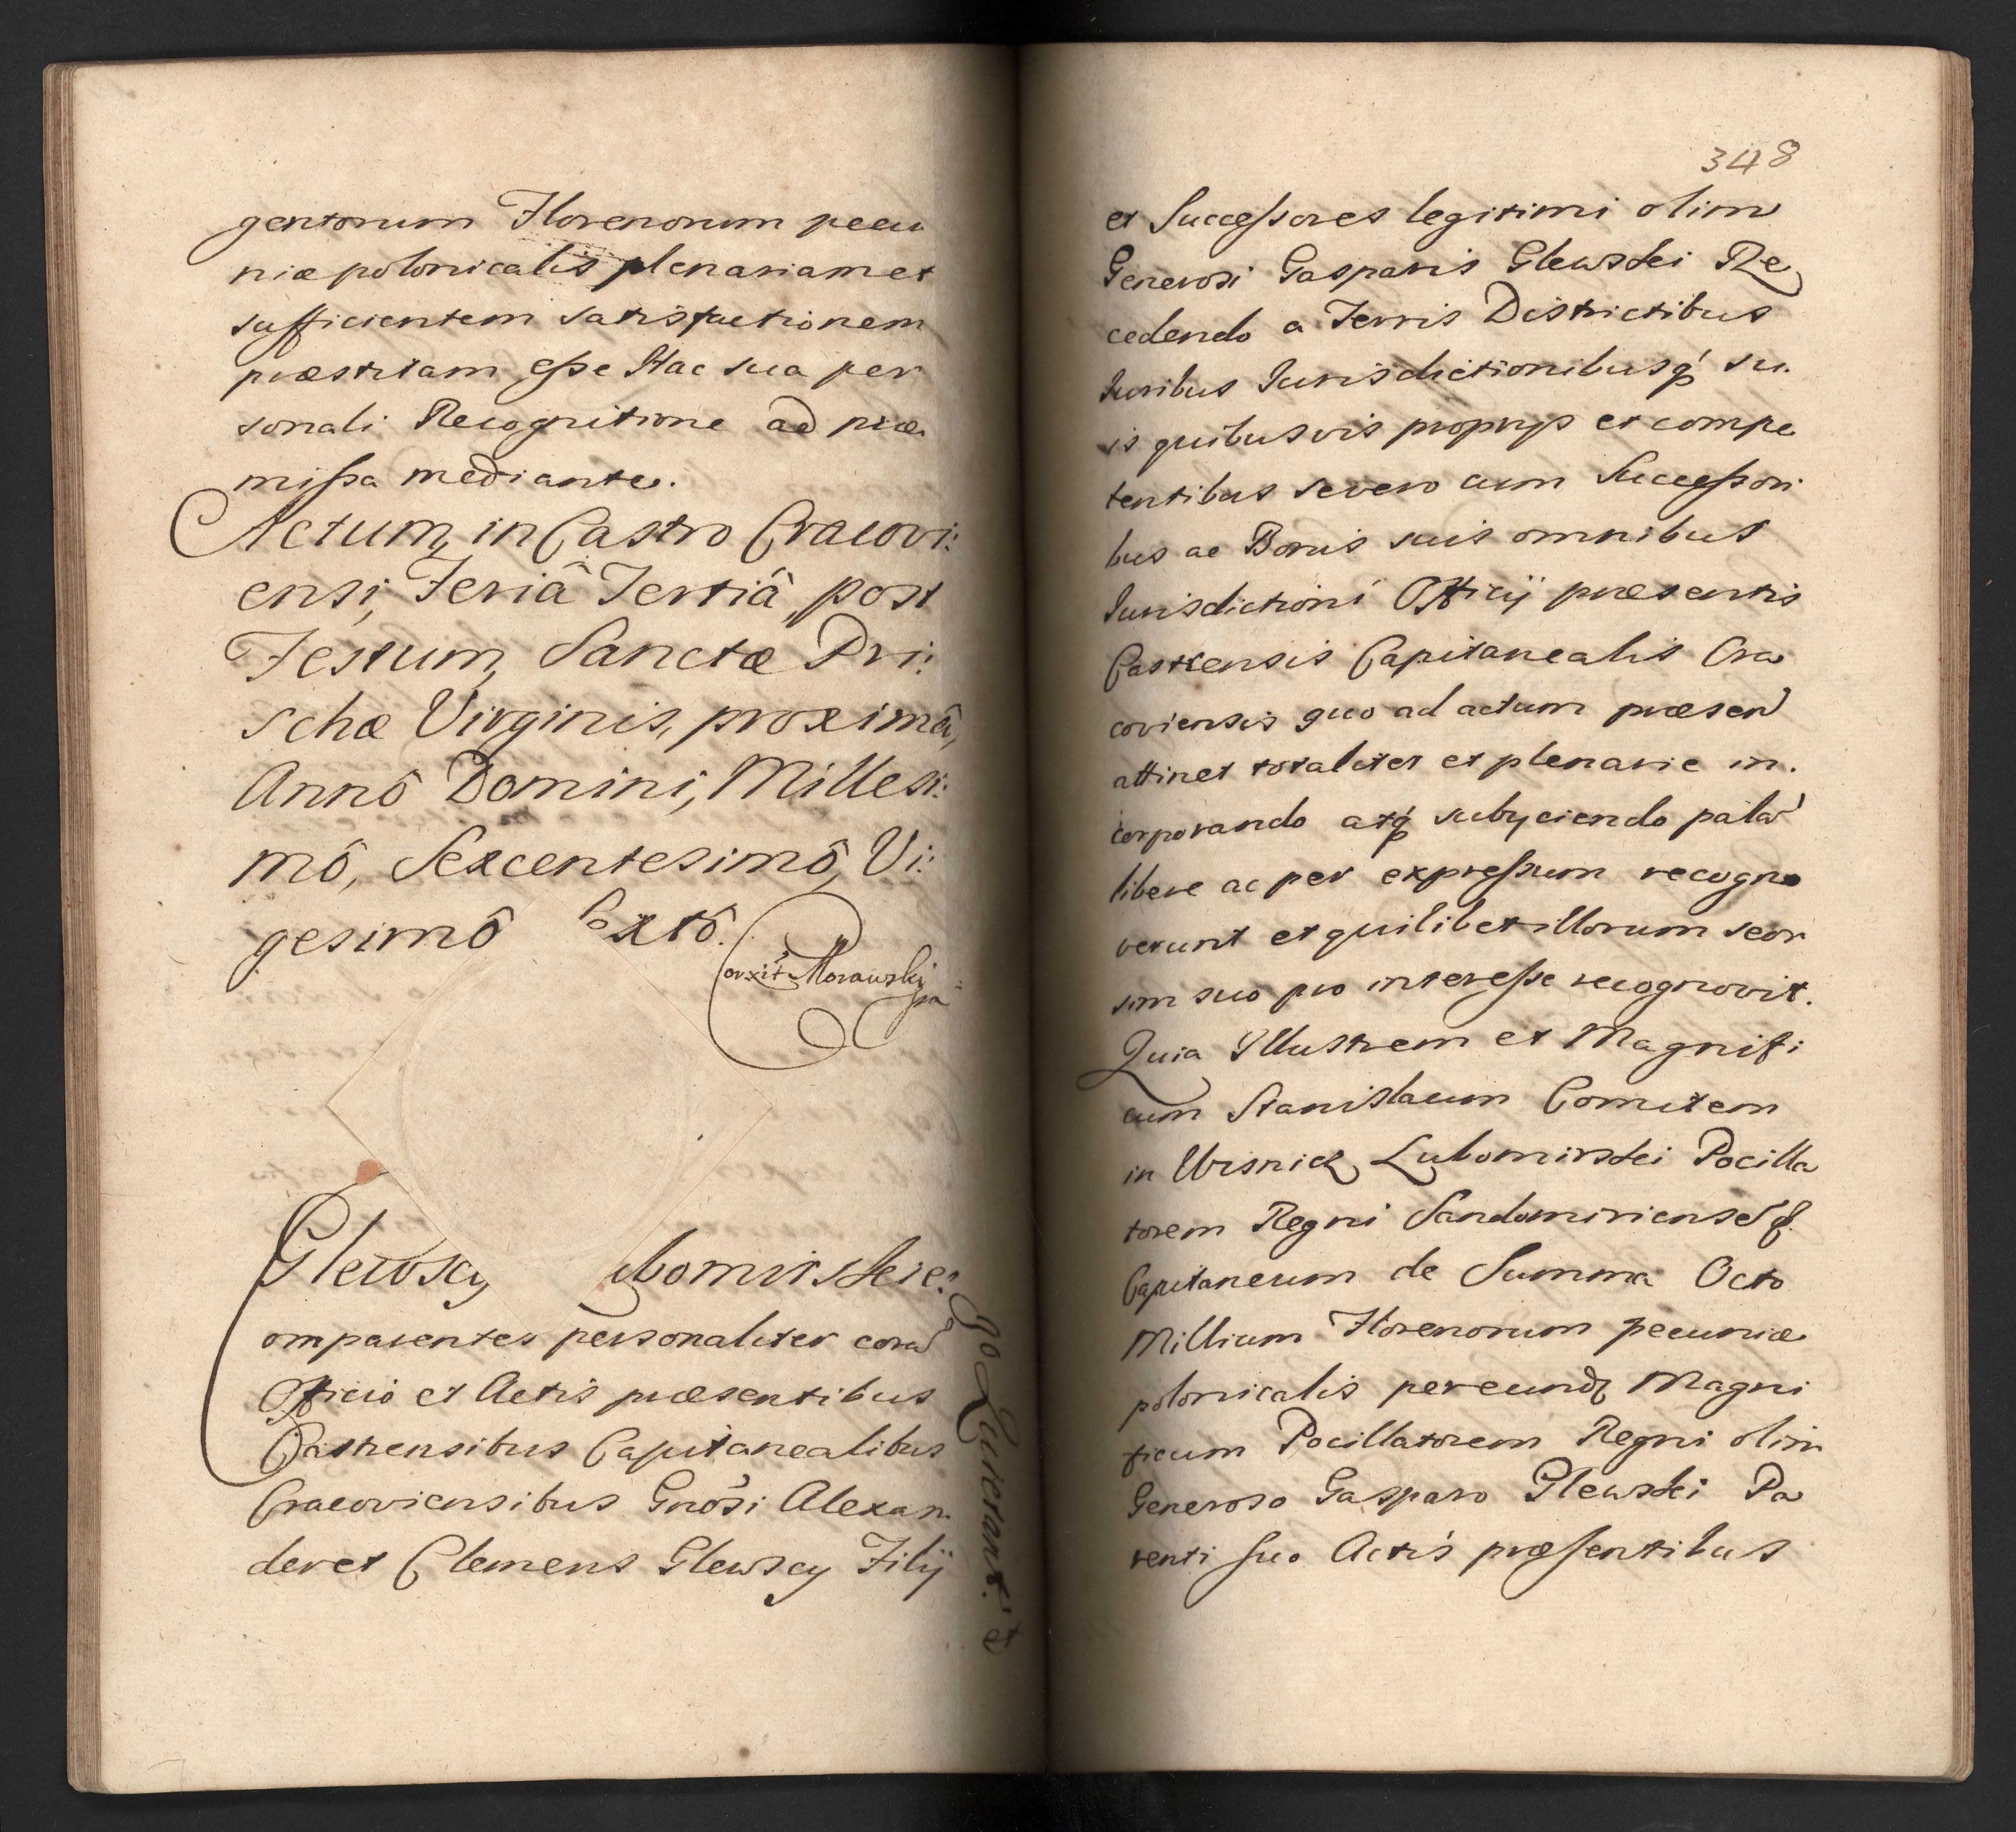 gentorum Florenorum pecu
niæ polonicalis plenariam et
sufficientem satisfactionem
præstitam esse Hac sua per
sonali Recognitione ad præ
missa mediante.
Actum, in Castro Cracovi:
ensi, Feriâ Tertiâ, post
Festum, Sanctæ Pri:
schæ Virginis, proximâ,
Annô Domini, Millesi:
mô, Sexcentesimô, Vi:
gesimô Sextô.
Corxit Morawsky
Glewscy
ubomirskie:
Comparentes personaliter corã
Officio et Actis præsentibus
Castrensibus Capitanealibus
Cracoviensibus Gnosi Alexan
der et Clemens Glewscy Filij
348
et Successores legitimi olim
Generosi Gasparis Glewskei Re
cedendo a Terris Districtibus
Iuribus Iurisdictionibusq́ su
is quibusvis proprijs et compe
tentibus se vero cum Successori
bus ac Bonis suis omnibus
Iurisdictioni Officij præsentis
Castrensis Capitanealis Cra
coviensis quo ad actum præsen
attinet totaliter et plenarie in.
corporando atq́ subyciendo palã
libere ac per expressum recogno
verunt et quilibet illorum seor
sim suo pro interesse recognovit.
Quia Illustrem et Magnifi
cum Stanislaum Comitem
in Wisnicz Lubomirskei Pocilla
torem Regni Sandomiriensēq.
Capitaneum de Summa Octo
Millium Florenorum pecuniæ
polonicalis per eund Magni
ficum Pocillatorem Regni olim
Generoso Gasparo Glewskei Pa
renti suo Actis præsentibus